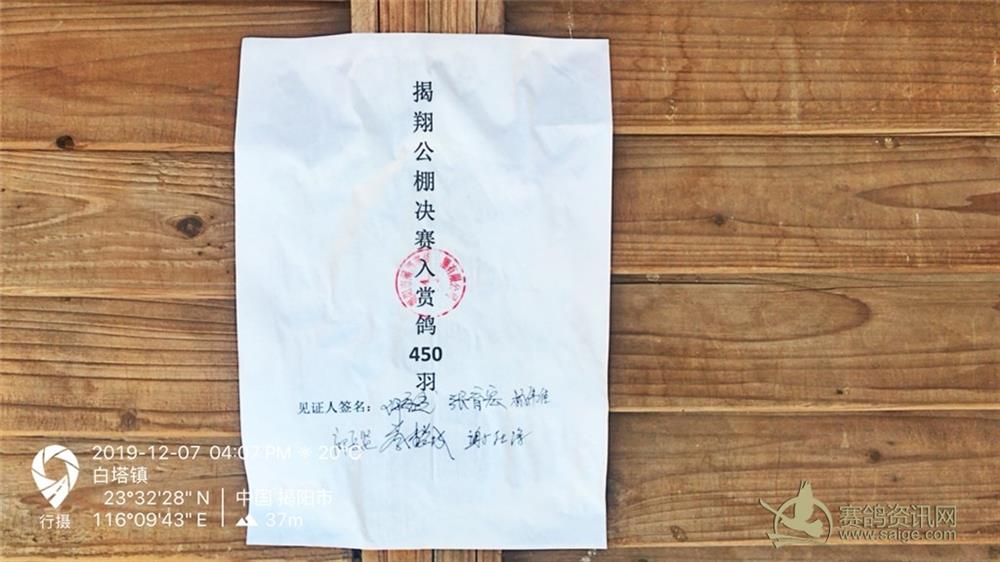 揭翔公棚决赛入赏鸽450羽
见证人签名：
2019-12-07 04:07 PM ☀ 20°C
白塔镇
23°32'28" N
116°09'43" E
中国 揭阳市
37m
行摄
赛鸽资讯网
www.saige.com